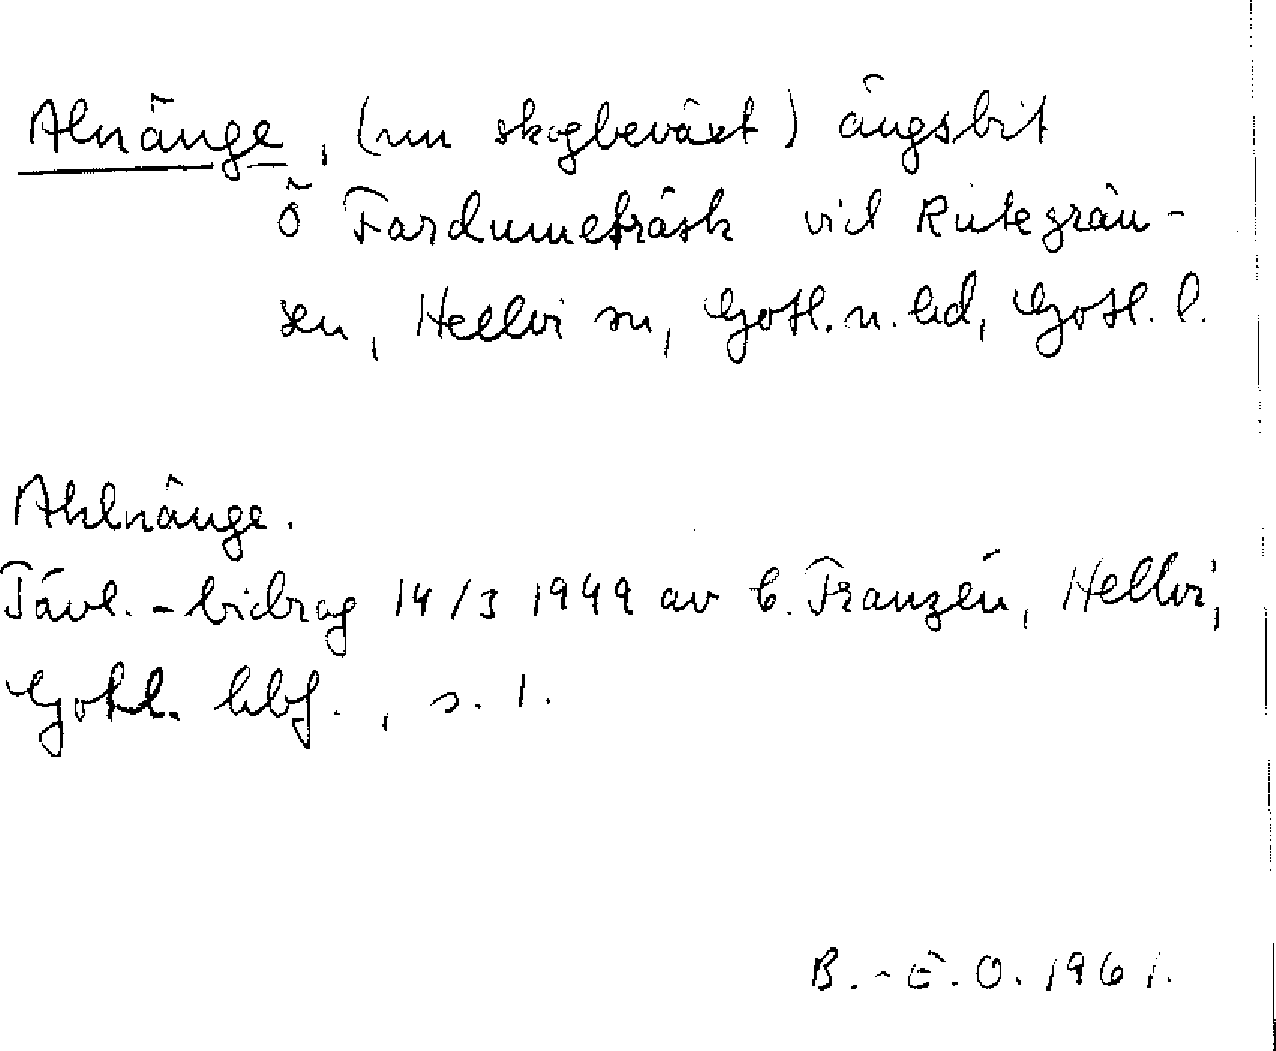 Alnänge, (nu skogbeväxt) ängsbit
Ö Fardumeträsk vid Rutegrän-
sen, Hellvi sn, Gotl. n. hd, Gotl. l.
Ahlnänge.
Tävl.-bidrag 14/3 1949 av C. Franzén, Hellvi,
Gotl. hbf., s. 1.
B.-E.O. 1961.